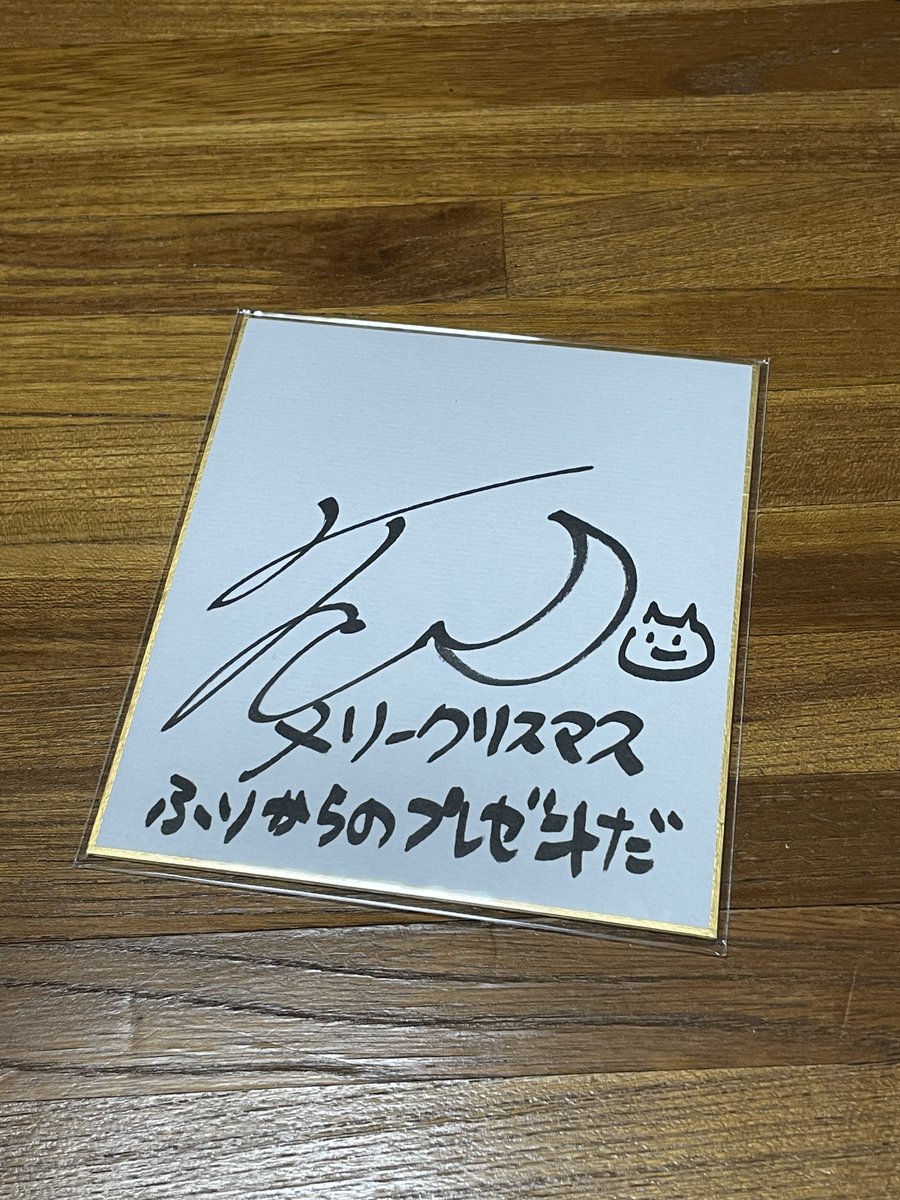 メリークリスマス
ふりからのプレゼ斗だ